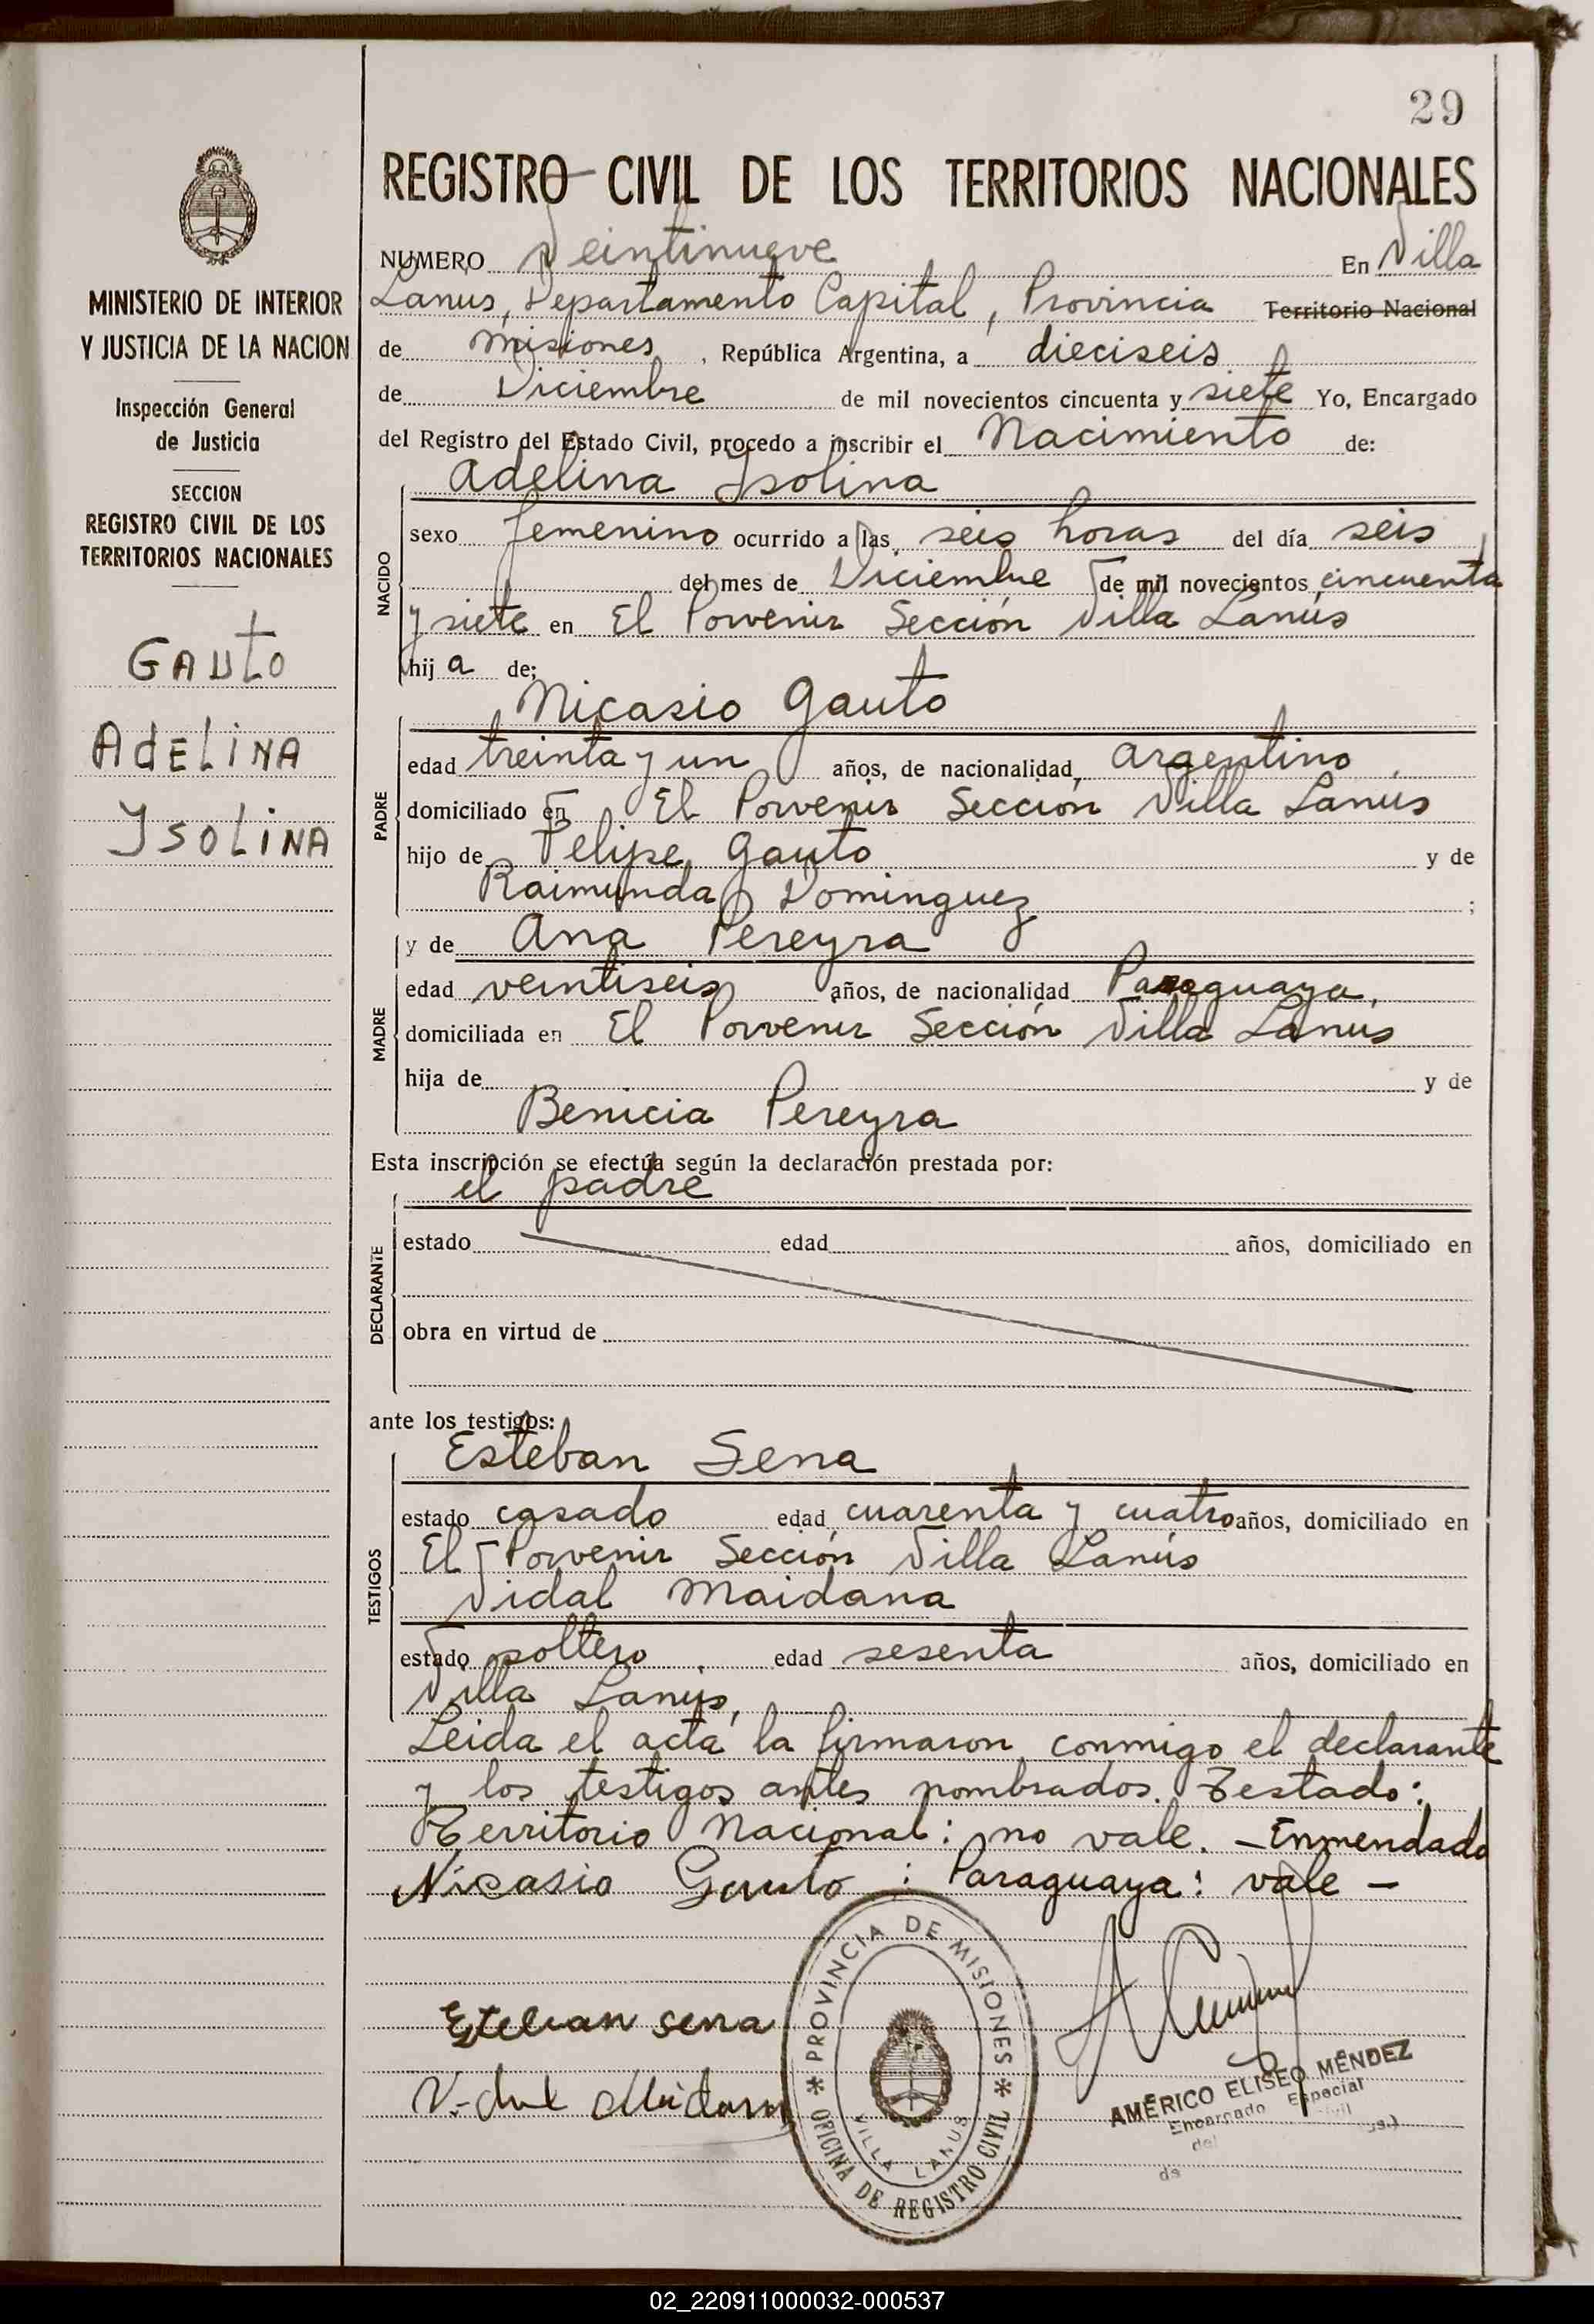 29
REGISTRO CIVIL DE LOS TERRITORIOS NACIONALES
NUMERO Veintinueve En Villa
Lanus, Departamento Capital, Provincia Territorio Nacional
de Misiones, República Argentina, a dieciseis
de Diciembre de mil novecientos cincuenta y siete Yo, Encargado
del Registro del Estado Civil, procedo a inscribir el Nacimiento de:
MINISTERIO DE INTERIOR
Y JUSTICIA DE LA NACION
Inspección General
de Justicia
SECCION
REGISTRO CIVIL DE LOS
TERRITORIOS NACIONALES
GAUTO
ADELINA
YSOLINA
NACIDO
Adelina Isolina
sexo femenino ocurrido a las seis horas del día seis
del mes de Diciembre de mil novecientos cincuenta
y siete en El Porvenir Sección Villa Lanús
hij a de:
PADRE
Nicasio Gauto
edad treinta y un años, de nacionalidad, argentino,
domiciliado en El Porvenir Sección Villa Lanús
hijo de Felipe Gauto y de
Raimunda Dominguez ;
MADRE
y de Ana Pereyra
edad veintiseis años, de nacionalidad Paraguaya,
domiciliada en El Porvenir Sección Villa Lanús
hija de y de
Benicia Pereyra
Esta inscripción se efectúa según la declaración prestada por:
DECLARANTE
el padre
estado edad años, domiciliado en
obra en virtud de
ante los testigos:
TESTIGOS
Esteban Sena
estado casado edad cuarenta y cuatro años, domiciliado en
El Porvenir Sección Villa Lanús
Vidal Maidana
estado soltero, edad sesenta años, domiciliado en
Villa Lanús,
Leida el acta la firmaron conmigo el declarante
y los testigos antes nombrados. Testado:
Territorio Nacional: no vale. - Enmendado
Nicasio Gauto : Paraguaya: vale -
Estevan Sena
PROVINCIA DE MISIONES
OFICINA DE REGISTRO CIVIL
VILLA LANUS
AMÉRICO ELISEO MÉNDEZ
Encargado Especial
del
de
02_220911000032-000537